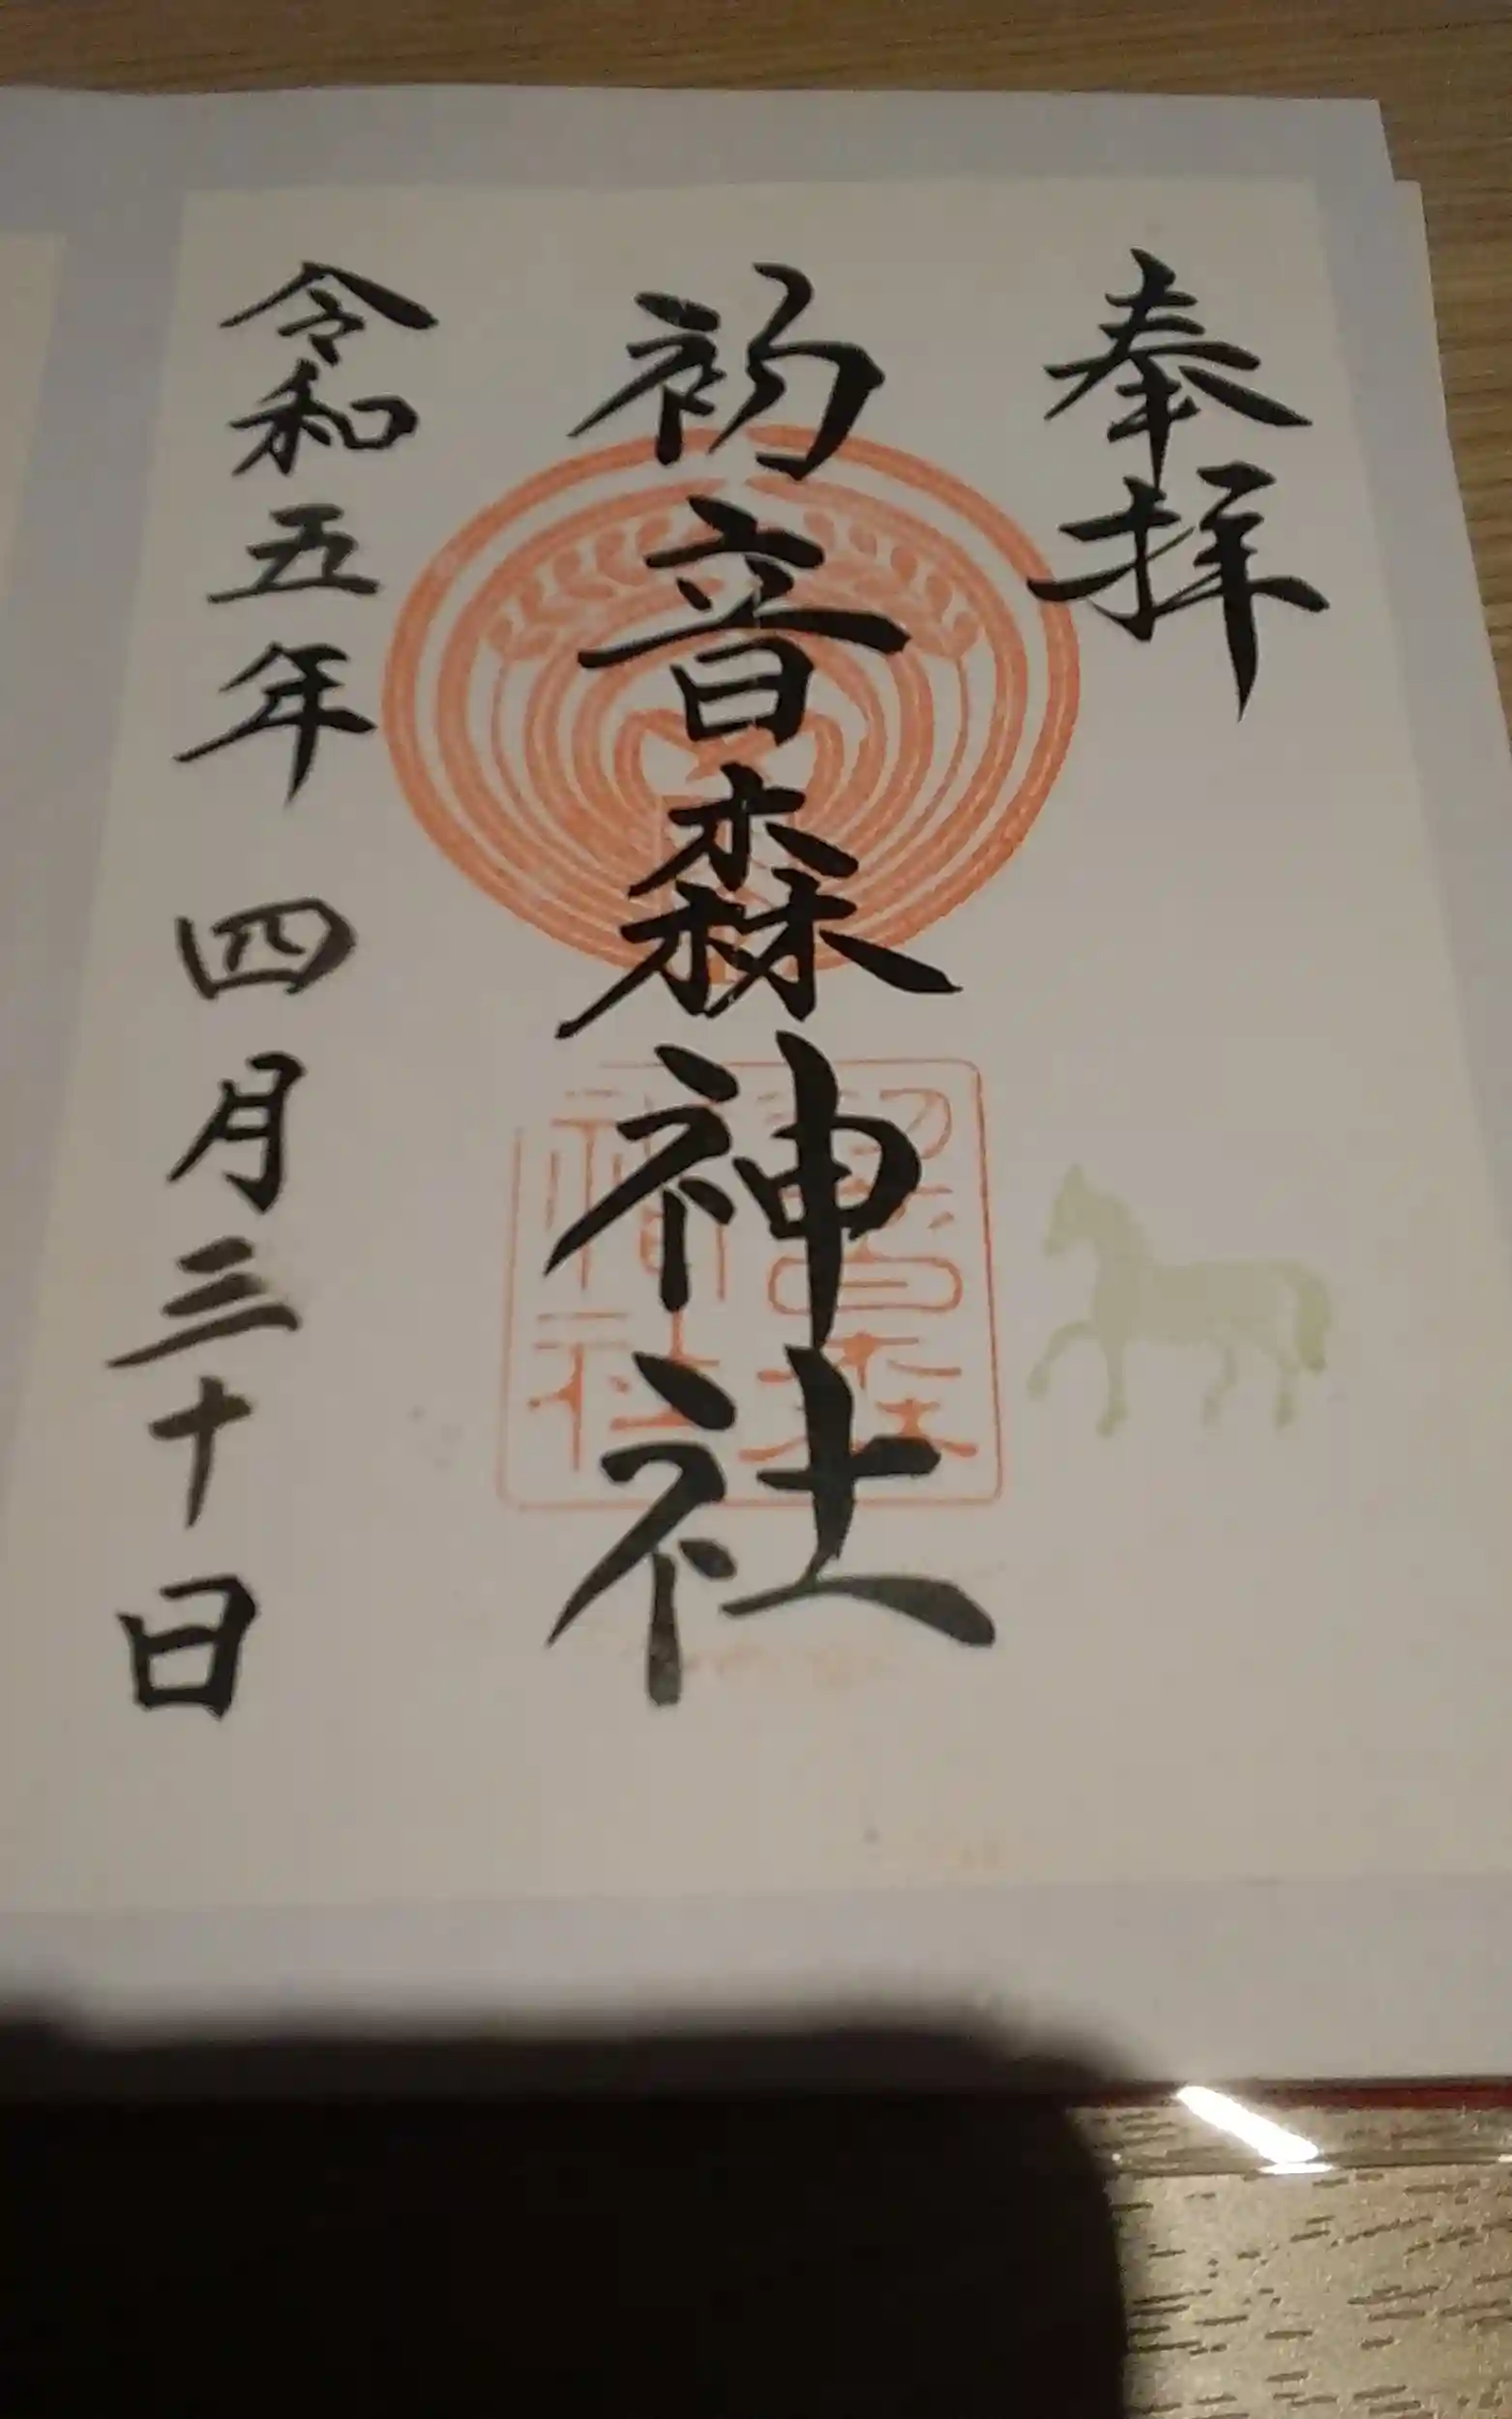 奉拝
初音森神社
初音森神社
令和五年 四月三十日